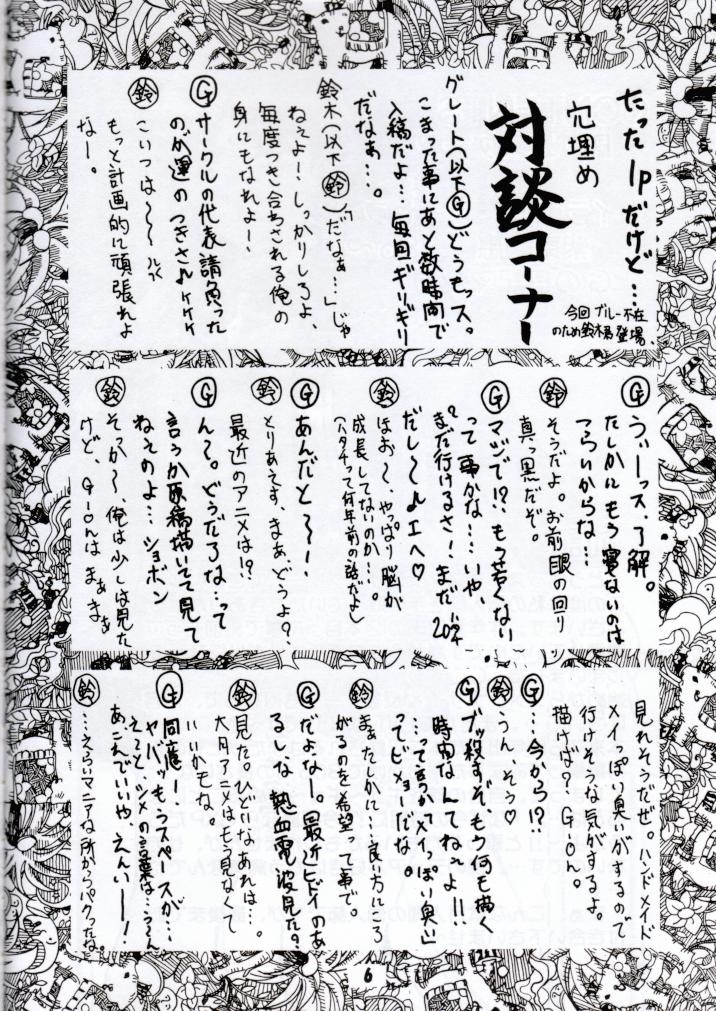 たった1Pだけど…
穴埋め
対談コーナー
今回ブルー不在
のため鈴木君登場、
グレート(以下Ⓖ)どうもッス。
こまった事にあと数時間で
入稿だよ…毎回ギリギリ
だなぁ…。
鈴木(以下㊐鈴)「だなぁ…」じゃ
ねぇよ!しっかりしろよ、
毎度つき合わされる俺の
身にもなれよー、
Ⓖ サークルの代表請負った
のが運のつきさ♪ケケケ
鈴 こいつは〜〜〜
もっと計画的に頑張れよ
なー。
Ⓖ うぃーっス、了解。
たしかにもう寝ないのは
つらいからな…
鈴 そうだよ。お前眼の回り
真っ黒だぞ。
Ⓖ マジで!?、もう若くない
って事かな…いや、
まだ行けるさ!まだハタチ
だしー♪エヘ♡
鈴 ほお〜、やっぱり脳が
成長してないのか…。
(ハタチって何年前の話だよ)
Ⓖ あんだとー!
鈴 とりあえず、まあどうよ?
最近のアニメは!?
Ⓖ ん〜。どうだろな…って
言うか原稿描いてて見て
ねぇのよ…ショボン
鈴 そっか〜、俺は少しは見た
けど、G-onはまぁまぁ
見れそうだぜ。ハンドメイド
メイっぽい臭いがするので
行けそうな気がするよ。
描けば?G-on。
Ⓖ …今から?
鈴 うん、そう♡
Ⓖ ブッ殺すぞ、もう何も描く
時間なんてねーよ!!
…って言うか「メイっぽい臭い」
ってビミョーだな。
鈴 まぁたしかに…良い方にころ
がるのを希望って事で。
Ⓖ だよなー。最近ヒドイのあ
るいな、熱血電波見た?
鈴 見た、ひどいなあれは…。
大月アニメはもう見なくて
いいかもな。
Ⓖ 同感ー!
ヤバッもうスペースが…
ええと、シメの言葉は…〜〜
あこんでいいや、えんいー!
鈴 …えらいマニアな所からパクったね。
6